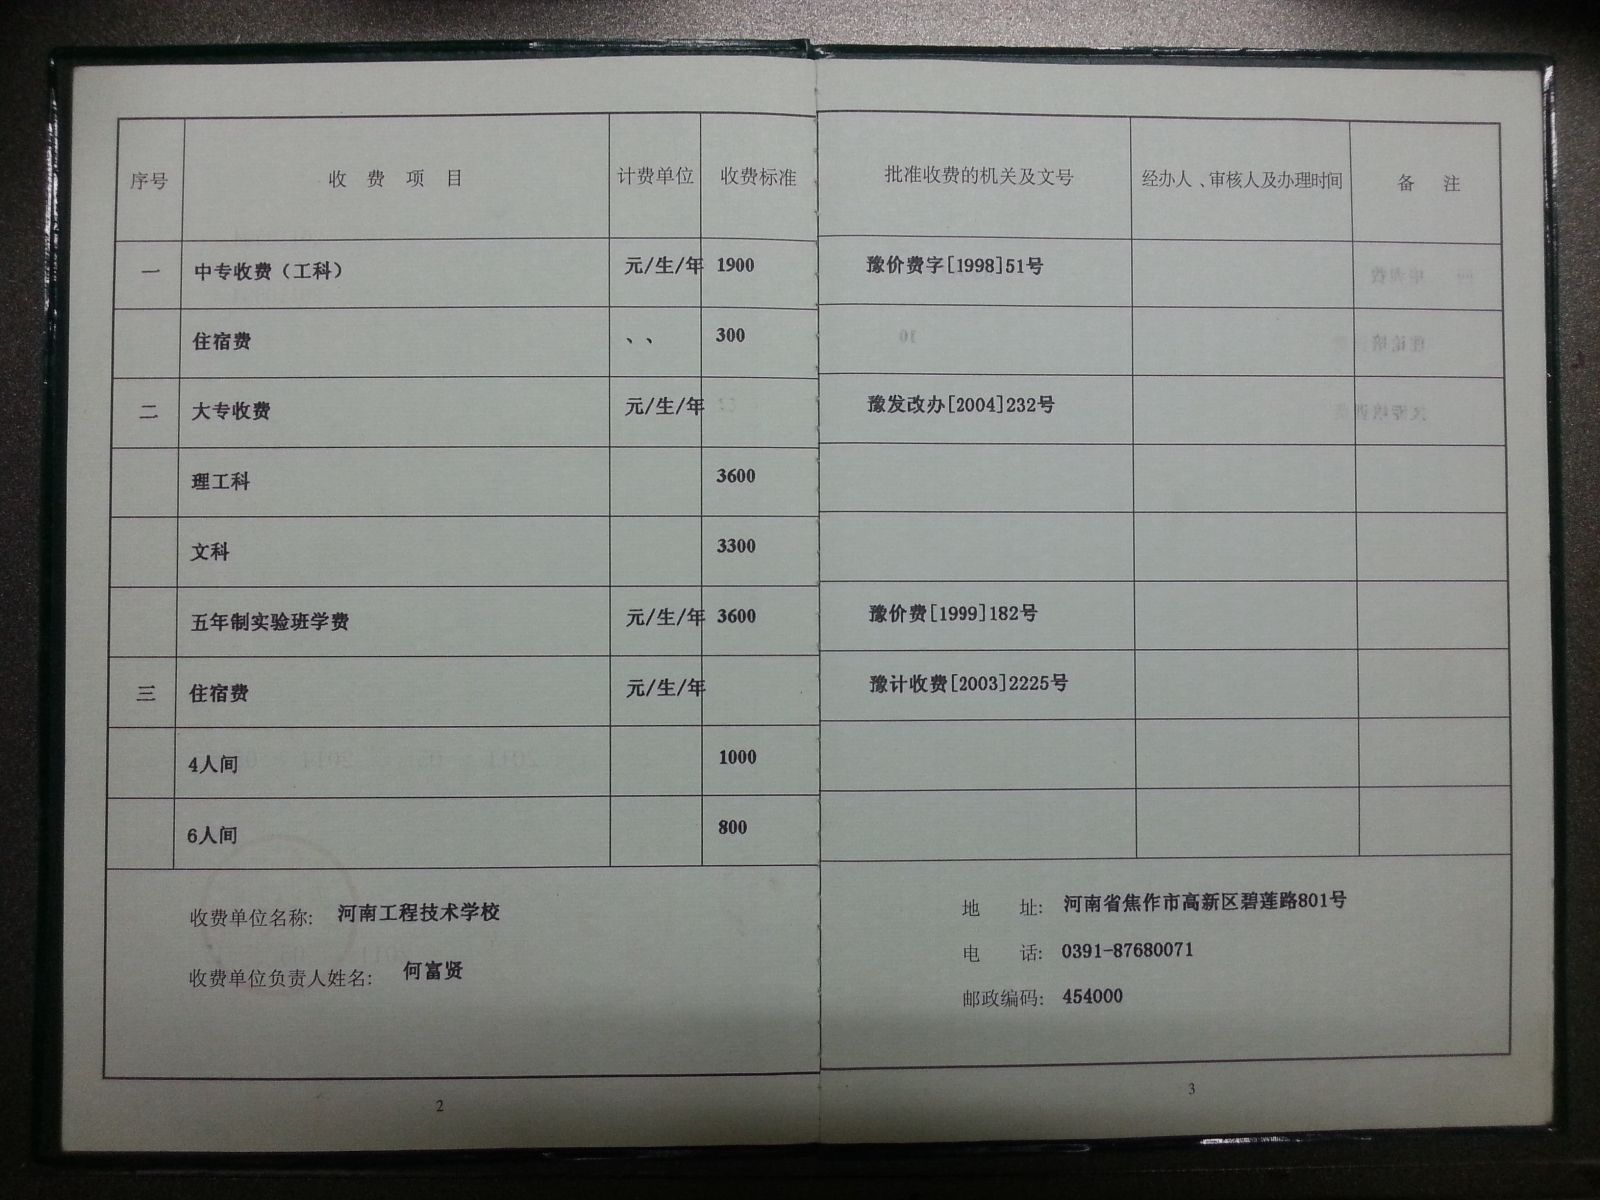 序号 收费项目 计费单位 收费标准 批准收费的机关及文号 经办人、审核人及办理时间 备注
一 中专收费（工科） 元/生/年 1900 豫价费字[1998]51号
住宿费 、、 300
二 大专收费 元/生/年 豫发改办[2004]232号
理工科 3600
文科 3300
五年制实验班学费 元/生/年 3600 豫价费[1999]182号
三 住宿费 元/生/年 豫计收费[2003]2225号
4人间 1000
6人间 800
收费单位名称: 河南工程技术学校
收费单位负责人姓名: 何富贤
地 址: 河南省焦作市高新区碧莲路801号
电 话: 0391-87680071
邮政编码: 454000
2
3